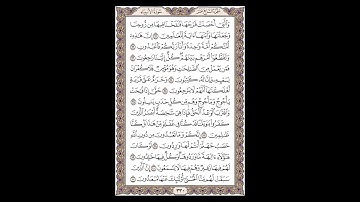 الجزء السابع عشر سورة الأنبياء
وَٱلَّتِىٓ أَحْصَنَتْ فَرْجَهَا فَنَفَخْنَا فِيهَا مِن رُّوحِنَا
وَجَعَلْنَٰهَا وَٱبْنَهَآ ءَايَةً لِّلْعَٰلَمِينَ ٩١ إِنَّ هَٰذِهِۦٓ
أُمَّتُكُمْ أُمَّةً وَٰحِدَةً وَأَنَا۠ رَبُّكُمْ فَٱعْبُدُونِ ٩٢
وَتَقَطَّعُوٓا۟ أَمْرَهُم بَيْنَهُمْ كُلٌّ إِلَيْنَا رَٰجِعُونَ ٩٣
فَمَن يَعْمَلْ مِنَ ٱلصَّٰلِحَٰتِ وَهُوَ مُؤْمِنٌ فَلَا كُفْرَانَ
لِسَعْيِهِۦ وَإِنَّا لَهُۥ كَٰتِبُونَ ٩٤ وَحَرَٰمٌ عَلَىٰ قَرْيَةٍ
أَهْلَكْنَٰهَآ أَنَّهُمْ لَا يَرْجِعُونَ ٩٥ حَتَّىٰٓ إِذَا فُتِحَتْ
يَأْجُوجُ وَمَأْجُوجُ وَهُم مِّن كُلِّ حَدَبٍ يَنسِلُونَ ٩٦
وَٱقْتَرَبَ ٱلْوَعْدُ ٱلْحَقُّ فَإِذَا هِىَ شَٰخِصَةٌ أَبْصَٰرُ ٱلَّذِينَ
كَفَرُوا۟ يَٰوَيْلَنَا قَدْ كُنَّا فِى غَفْلَةٍ مِّنْ هَٰذَا بَلْ كُنَّا
ظَٰلِمِينَ ٩٧ إِنَّكُمْ وَمَا تَعْبُدُونَ مِن دُونِ ٱللَّهِ
حَصَبُ جَهَنَّمَ أَنتُمْ لَهَا وَٰرِدُونَ ٩٨ لَوْ كَانَ
هَٰٓؤُلَآءِ ءَالِهَةً مَّا وَرَدُوهَا وَكُلٌّ فِيهَا خَٰلِدُونَ ٩٩
لَهُمْ فِيهَا زَفِيرٌ وَهُمْ فِيهَا لَا يَسْمَعُونَ ١٠٠ إِنَّ ٱلَّذِينَ
سَبَقَتْ لَهُم مِّنَّا ٱلْحُسْنَىٰٓ أُو۟لَٰٓئِكَ عَنْهَا مُبْعَدُونَ ١٠١
٣٣٠